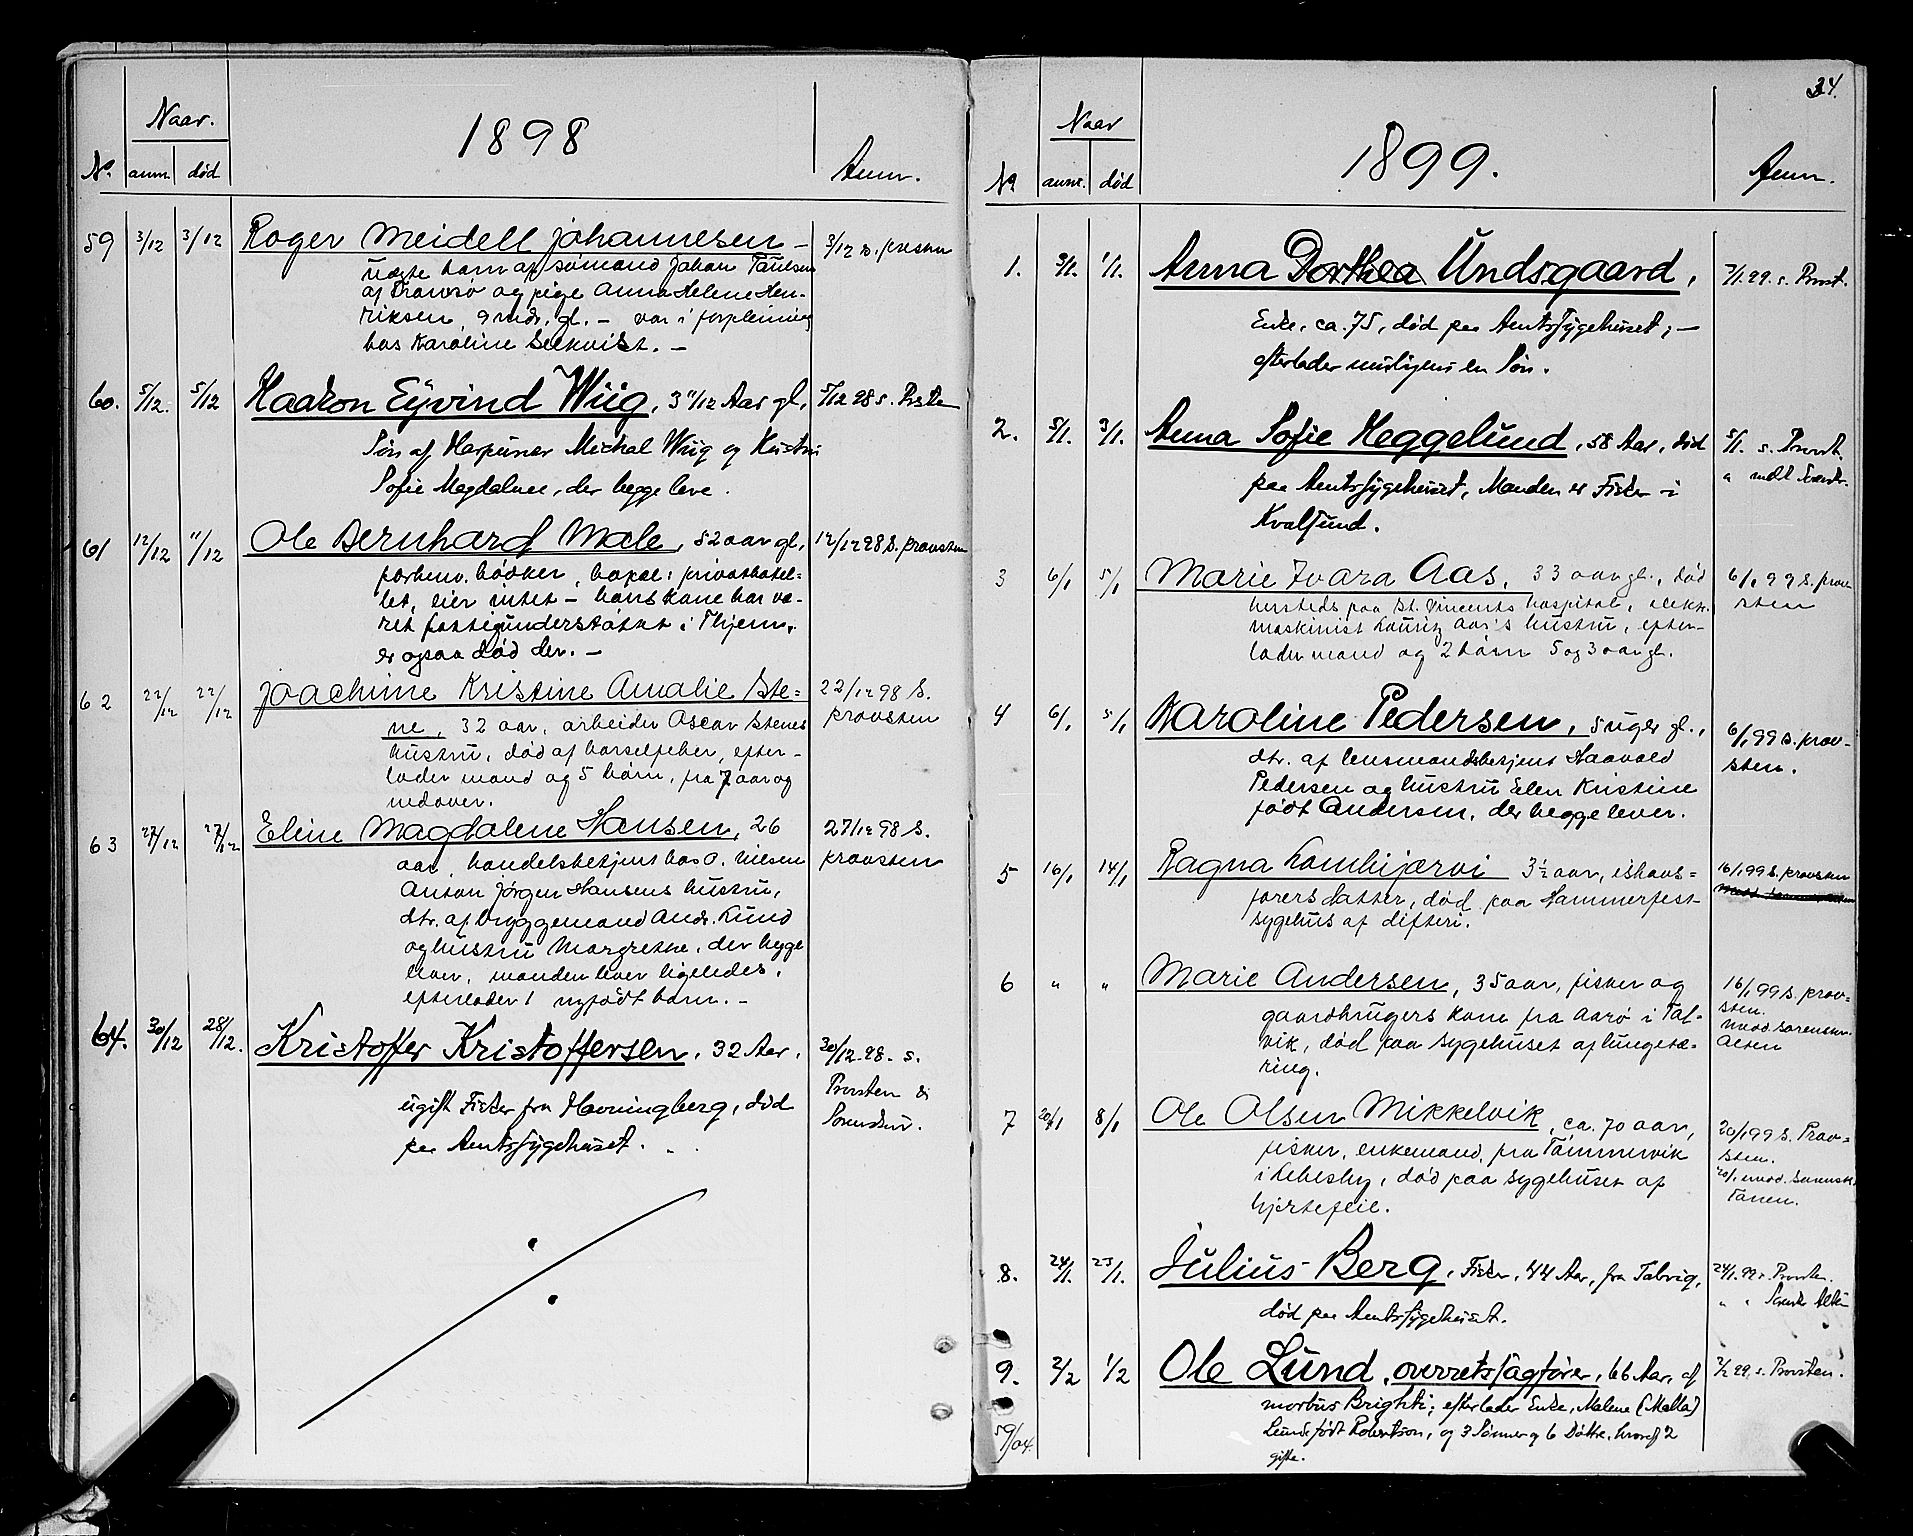 Naar.
1898
No. anm. død
Anm.
59 3/12 3/12 Roger Meidell Johannesen – 3/12 s. provsten
uægte barn af sømand Johan Paulsen
af Tromsø og pige Anna Helene Hen-
riksen, 9 mdr. gl. – var i forpleining
hos Karoline Selkvist. –
60. 5/12. 5/12 Haakon Eyvind Wiig, 3 11/12 Aar gl, 5/12 98 s.
Søn af Harpuner Michal Wiig og Hustru
Sofie Magdalene, der begge leve.
61 12/12 11/12 Ole Bernhard Male, 52 aar gl, 12/12 98 s. provsten
forhenv. bødker, bopæl: privathotel-
let, eier intet – hans kone har væ-
ret fattigunderstøttet i Thjem,
er ogsaa død der. –
62 22/12 22/12 Joachime Kristine Amalie Ste= 22/12 98 s.
ne, 32 aar, arbeider Oscar Stenes provsten
hustru, død af barselfeber, efter-
lader mand og 5 børn, fra 7 aar og
nedover.
63 27/12 27/12 Eline Magdalene Hansen, 26 27/12 98 s.
aar, handelsbetjent hos O. Nielsen provsten
Anton Jørgen Hansens hustru,
dtr. af bryggemand Andr. Lund
og hustru Margrethe, der begge
lever, manden lever ligeledes,
efterlader 1 nyfødt barn. –
64. 30/12 28/12. Kristoffer Kristoffersen, 32 Aar, 30/12 98 – s.
Provsten &
ugift Fisker fra Havningberg, død
Sorenskr.
paa Amtssygehuset.
34.
Naar
1899.
No anm. død
Anm.
1. 3/1. 1/1. Anna Dorthea Undsgaard, 3/1. 99. s. Provst.
Enke, ca. 75, død paa Amtssygehuset; –
efterlader muligens en Søn.
2. 5/1. 3/1. Anna Sofie Heggelund, 58 Aar, død 5/1. s. Provst.
paa Amtssygehuset, Manden er Fisker i
Kvalsund.
3 6/1 5/1 Marie Ivara Aas, 33 aar gl., død 6/1 99 s. prov-
hersteds paa St. Vincents hospital, elektr. sten
maskinist Lauritz Aas's hustru, efter-
lader mand og 2 børn 5 og 3 aar gl.
4 6/1 5/1 Karoline Pedersen, 5 uger gl., 6/1 99 s. prov-
dtr. af lensmandsbetjent Haavald sten.
Pedersen og hustru Elen Kristine
født Andersen, der begge lever.
5 16/1 14/1 Ragna Lomhijærvi 3½ aar, ishavs= 16/1 99 s. provsten
førers datter, død paa Hammerfest
sygehus af difteri.
6 " " Marie Andersen, 35 aar, fisker og 16/1 99 s. prov-
gaardbrugers kone fra Aarø i Tal- sten.
vik, død paa sygehuset af lungetæ- medd. sorenskr.
ring. Alten
7 20/1 8/1 Ole Olsen Mikkelvik, ca. 70 aar, 20/1 99 s. Prov=
fisker, enkemand, fra Tømmervik sten.
i Lebesby, død paa sygehuset af 20/1 medd. sorenskr.
hjertefeil. Tanen.
8. 24/1. 23/1. Julius Berg, Fisker, 44 Aar, fra Talvig, 24/1. 99 s. Provsten.
død paa Amtssygehuset. " " Sorenskr. Alten
9. 2/2 1/2 Ole Lund, overretssagfører, 66 Aar, af 2/2 99, s. Provsten.
morbus Brighti; efterlader Enke, Malene (Malla)
Lund født Robertson, og 3 Sønner og 6 Døtre, hvoraf 2
gifte.
59/04.